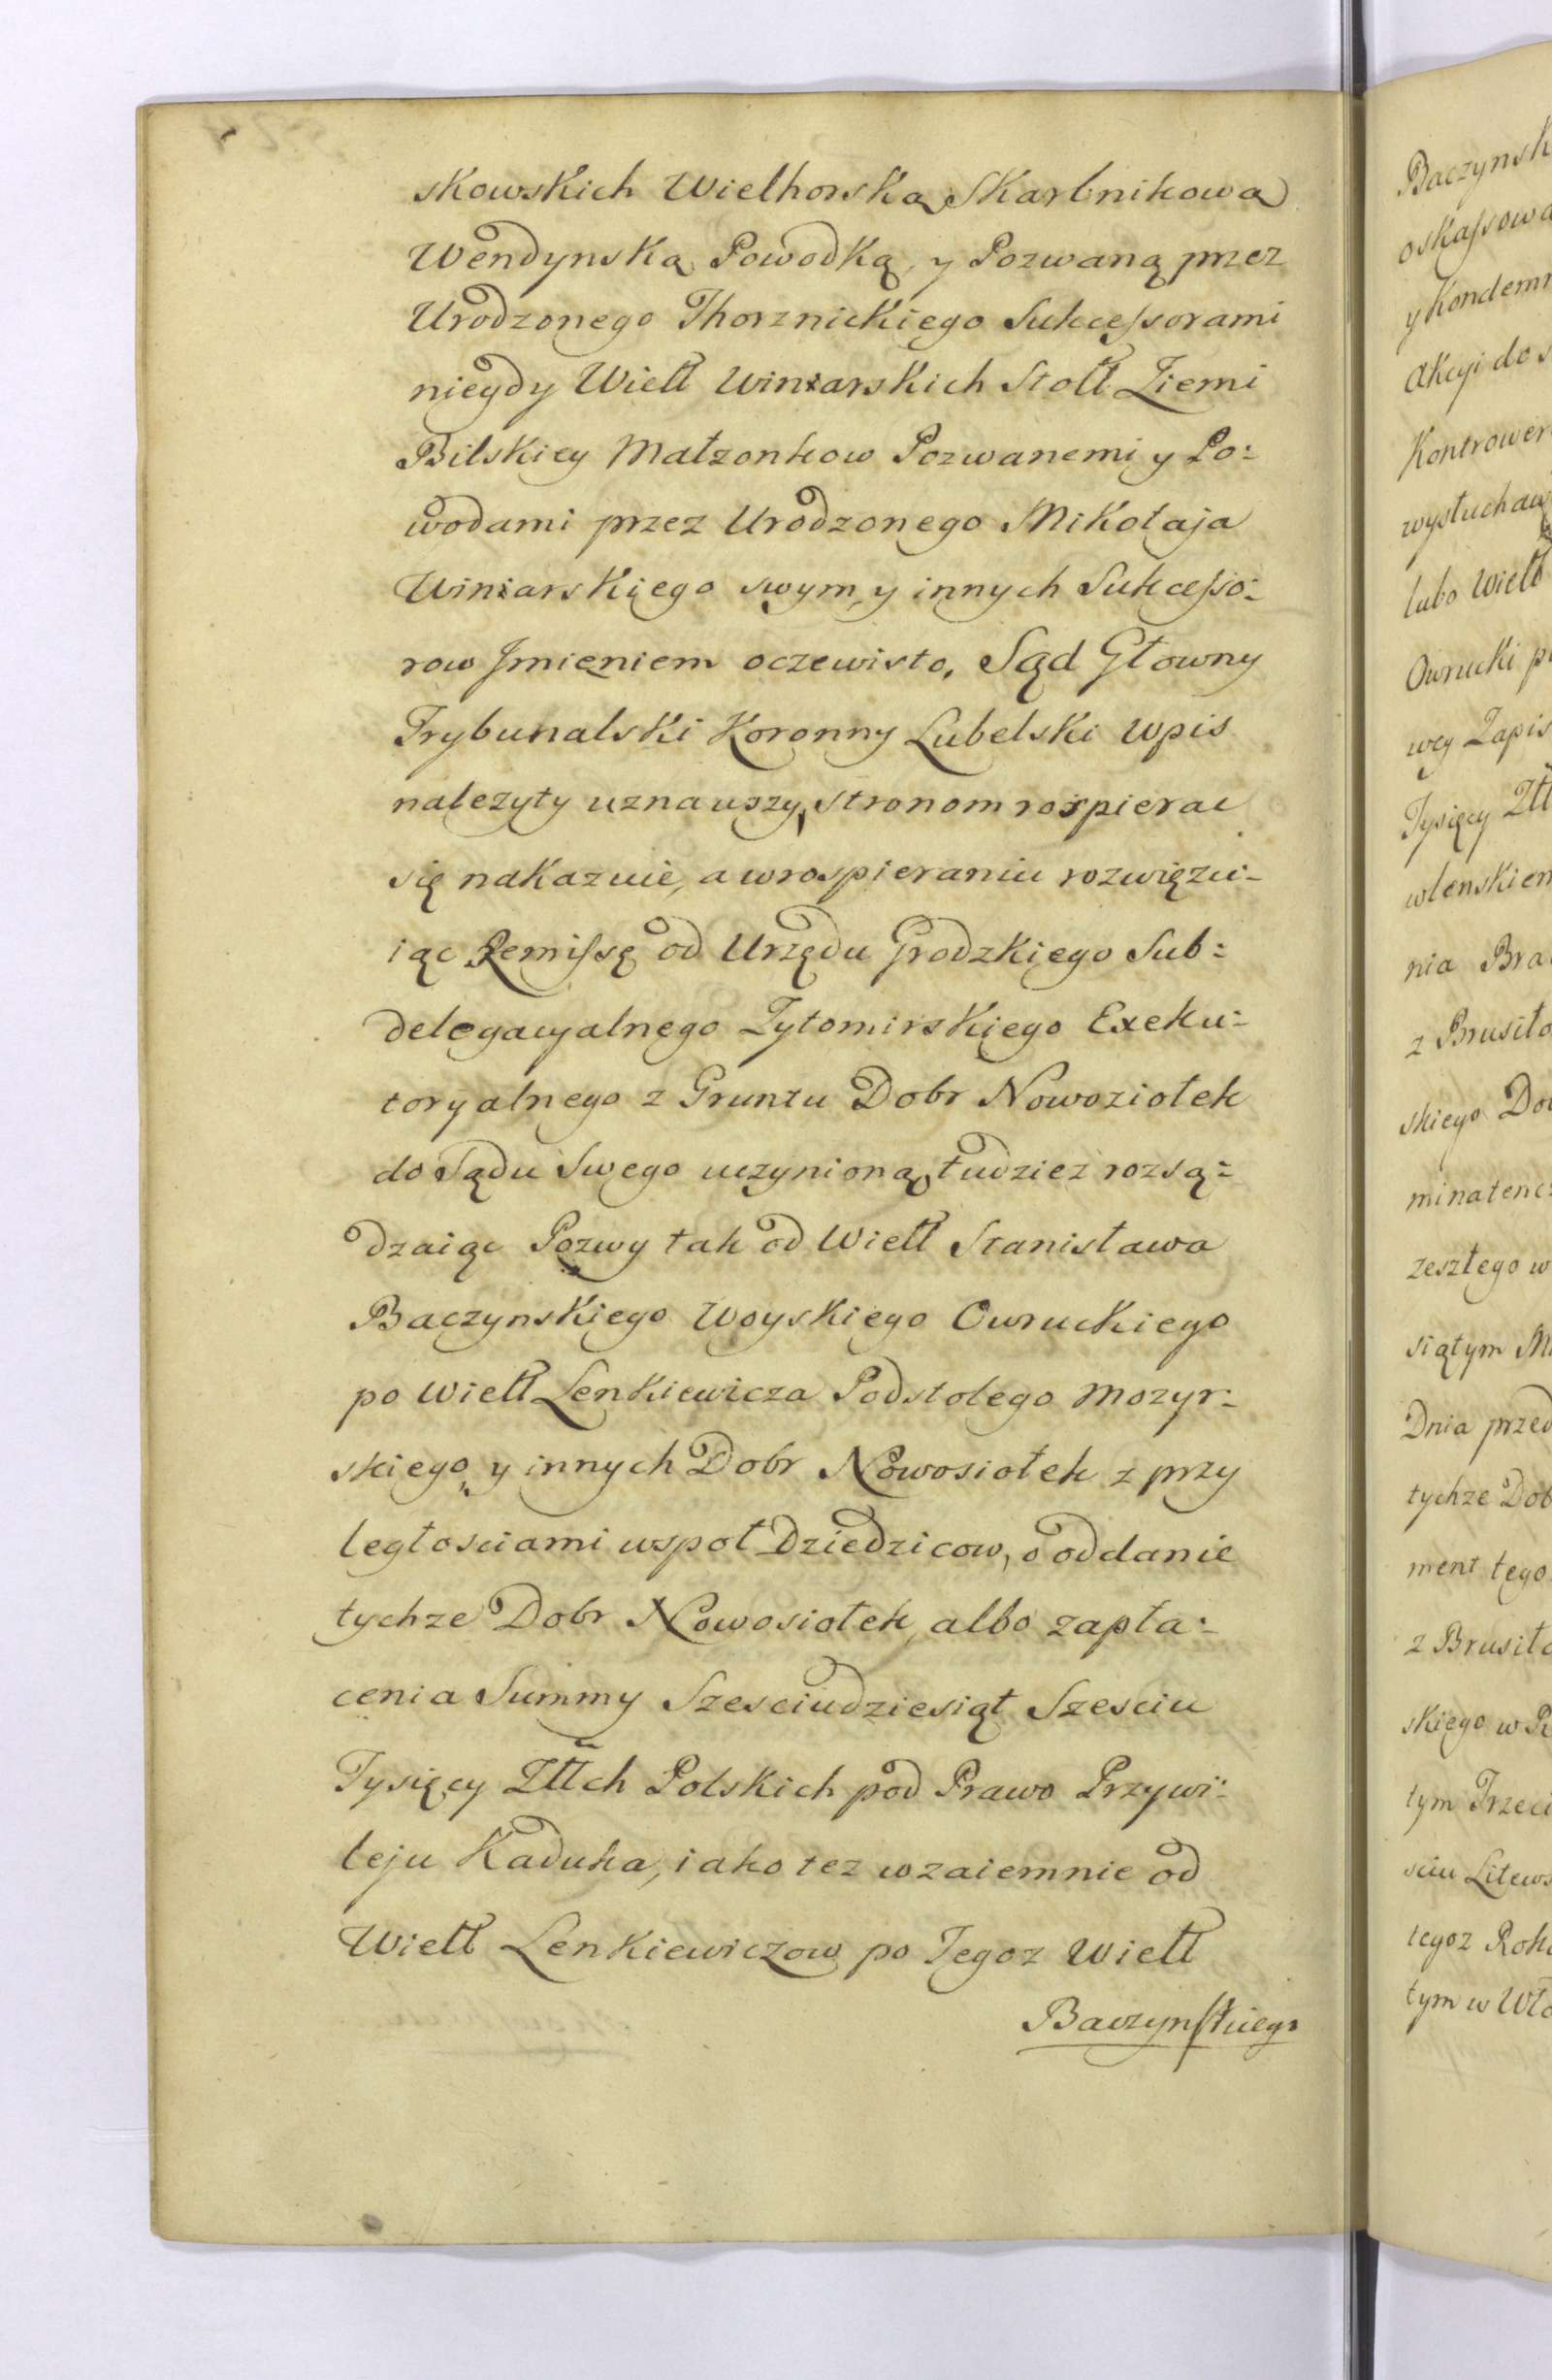 skowskich Wielhorską Skarbnikową
Wendynską Powodką, y Pozwaną przez
Urodzonego Thorznickiego Sukcessorami
niegdy Wiełł Winiarskich Stołł Ziemi
Bilskiey Małzonkow Pozwanemi y Po:
wodami przez Urodzonego Mikołaja
Winiarskiego swym y innych Sukcesso:
row Jmieniem oczewisto, Sąd Głowny
Trybunalski Koronny Lubelski Wpis
nalezyty uznauszy, stronom rospierac
się nakazuie, a w rospieraniu rozwięzu-
iąc Remissę od Urzędu Grodzkiego Sub:
delegacyalnego Zytomirskiego Exeku:
toryalnego z Gruntu Dobr Nowoziołek
do Sądu Swego uczynioną, tudziez rozsą:
dzaiąc Pozwy tak od Wiełł Stanisława
Baczynskiego Woyskiego Owruckiego
po Wiełł Lenkiewicza Podstolego Mozyr-
skiego, y innych Dobr Nowosiołek z przy
ległosciami wspoł Dziedzicow, o oddanie
tychze Dobr Nowosiołek, albo zapła:
cenia Summy Szesciudziesiąt Szesciu
Tysięcy Złłch Polskich pod Prawo Przywi:
leju Kaduka, iako tez wzaiemnie od
Wiełł Lenkiewiczow po Tegoz Wiełł
Baczynskiego
Baczynsk
oskassowa
y Kondemn
Akcyi do s
Kontrower
wysłuchaw
lubo Wiełł
Owrucki p
wey Zapis
Tysięcy Złł
wlenskiem
nia Bra
z Brusiło
skiego Do
minatenc
zeszłego w
siątym M
Dnia przed
tychze Dob
ment tego
z Brusiło
skiego w P
tym Trzeci
sciu Litews
tegoz Rok
tym w Wło